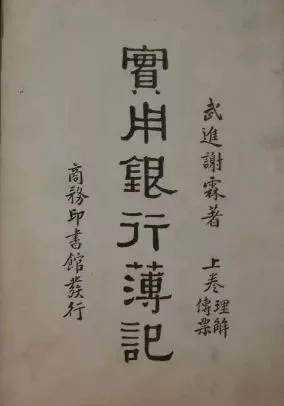 武進謝霖著
上卷 理解 傳票
實用銀行薄記
商務印書館發行